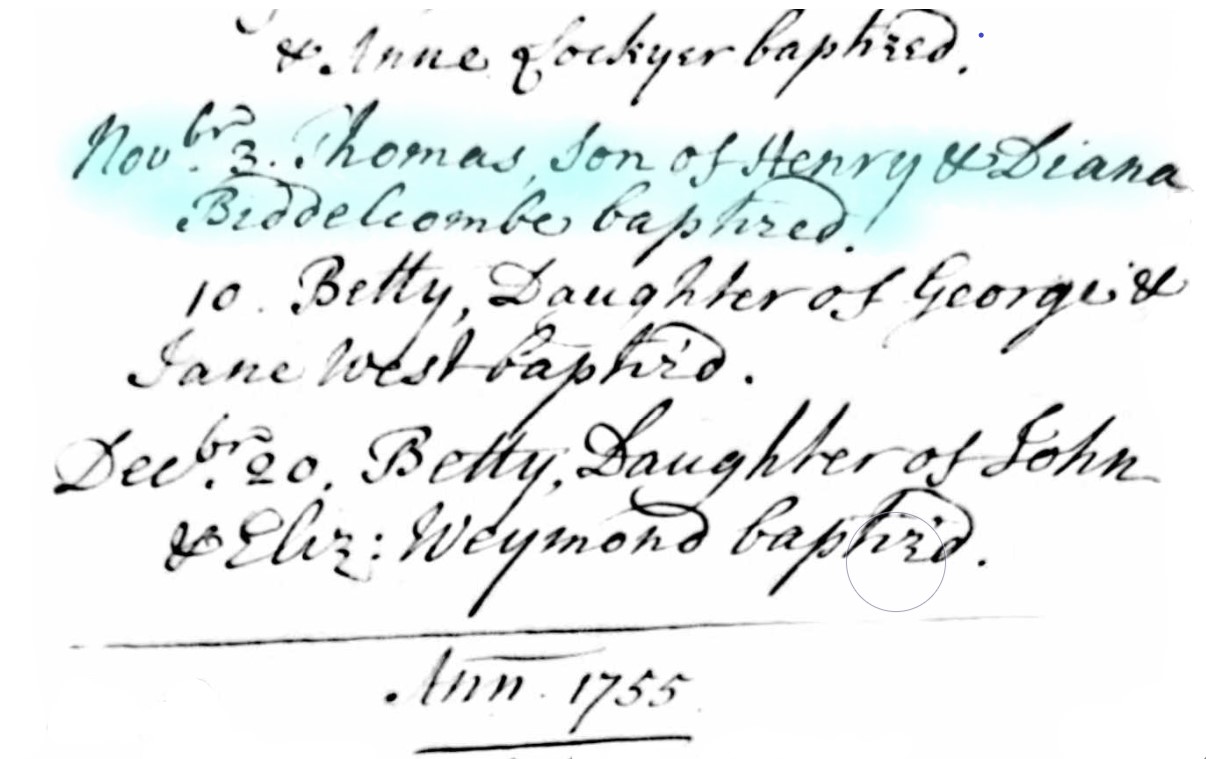 & Anne Lockyer baptized.
Novbr. 3. Thomas, Son of Henry & Diana
Biddelcombe baptized.
10. Betty, Daughter of George &
Jane West baptiz'd.
Decbr. 20. Betty, Daughter of John
& Eliz: Weymond baptiz'd.
Ann. 1755